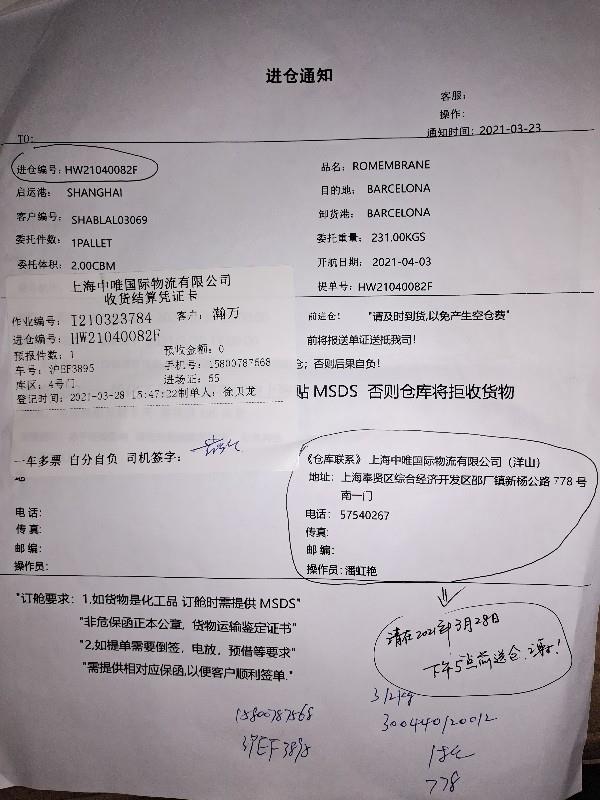 进仓通知
客服：
操作：
TO:
通知时间：2021-03-23
进仓编号：HW21040082F
品名：ROMEMBRANE
启运港： SHANGHAI
目的地： BARCELONA
客户编号： SHABLAL03069
卸货港： BARCELONA
委托件数：1PALLET
委托重量：231.00KGS
委托体积：2.00CBM
开航日期：2021-04-03
提单号：HW21040082F
上海中唯国际物流有限公司
收货结算凭证卡
作业编号：I210323784 客户：瀚万
进仓编号：HW21040082F
预报件数：1 预收金额：0
车号：沪EF3895 手机号：15800787568
库区：4号门 进场证：55
登记时间：2021-03-28 15:47:22制单人：徐贝龙
一车多票 自分自负 司机签字：
前进仓！ "请及时到货,以免产生空仓费"
前将报送单证送抵我司！
否则后果自负！
贴 MSDS 否则仓库将拒收货物
《仓库联系》上海中唯国际物流有限公司（洋山）
地址：上海奉贤区综合经济开发区邵厂镇新杨公路 778 号
南一门
电话：
电话：57540267
传真：
传真：
邮编：
邮编：
操作员：
操作员：潘虹艳
"订舱要求：1,如货物是化工品 订舱时需提供 MSDS"
"非危保函正本公章，货物运输鉴定证书"
"2,如提单需要倒签，电放，预借等要求"
"需提供相对应保函,以便客户顺利签单."
请在2021年3月28日
下午5点前送仓，谢谢！
15800787568
沪EF3895
312kg
300440120012
778